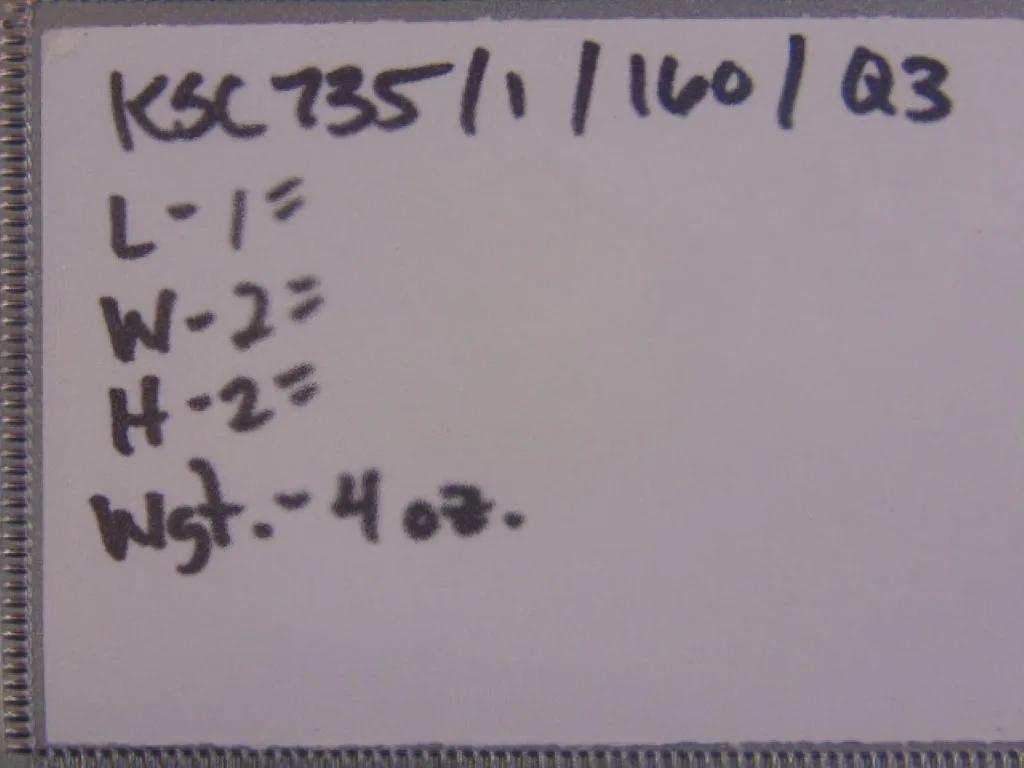 KSC735/1/160/Q3
L-1"
W-2"
H-2"
Wgt.-4 oz.